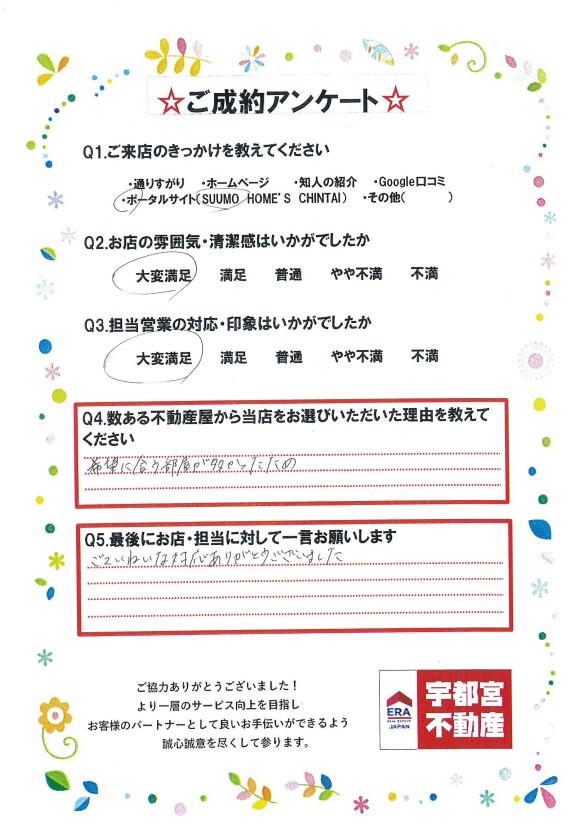 ☆ご成約アンケート☆
Q1.ご来店のきっかけを教えてください
・通りすがり ・ホームページ ・知人の紹介 ・Google口コミ
・ポータルサイト(SUUMO HOME'S CHINTAI) ・その他( )
Q2.お店の雰囲気・清潔感はいかがでしたか
大変満足 満足 普通 やや不満 不満
Q3.担当営業の対応・印象はいかがでしたか
大変満足 満足 普通 やや不満 不満
Q4.数ある不動産屋から当店をお選びいただいた理由を教えて
ください
希望に合う部屋が多かったため
Q5.最後にお店・担当に対して一言お願いします
ごていねいな対応ありがとうございました
ご協力ありがとうございました！
より一層のサービス向上を目指し
お客様のパートナーとして良いお手伝いができるよう
誠心誠意を尽くして参ります。
ERA
REAL ESTATE
JAPAN
宇都宮
不動産